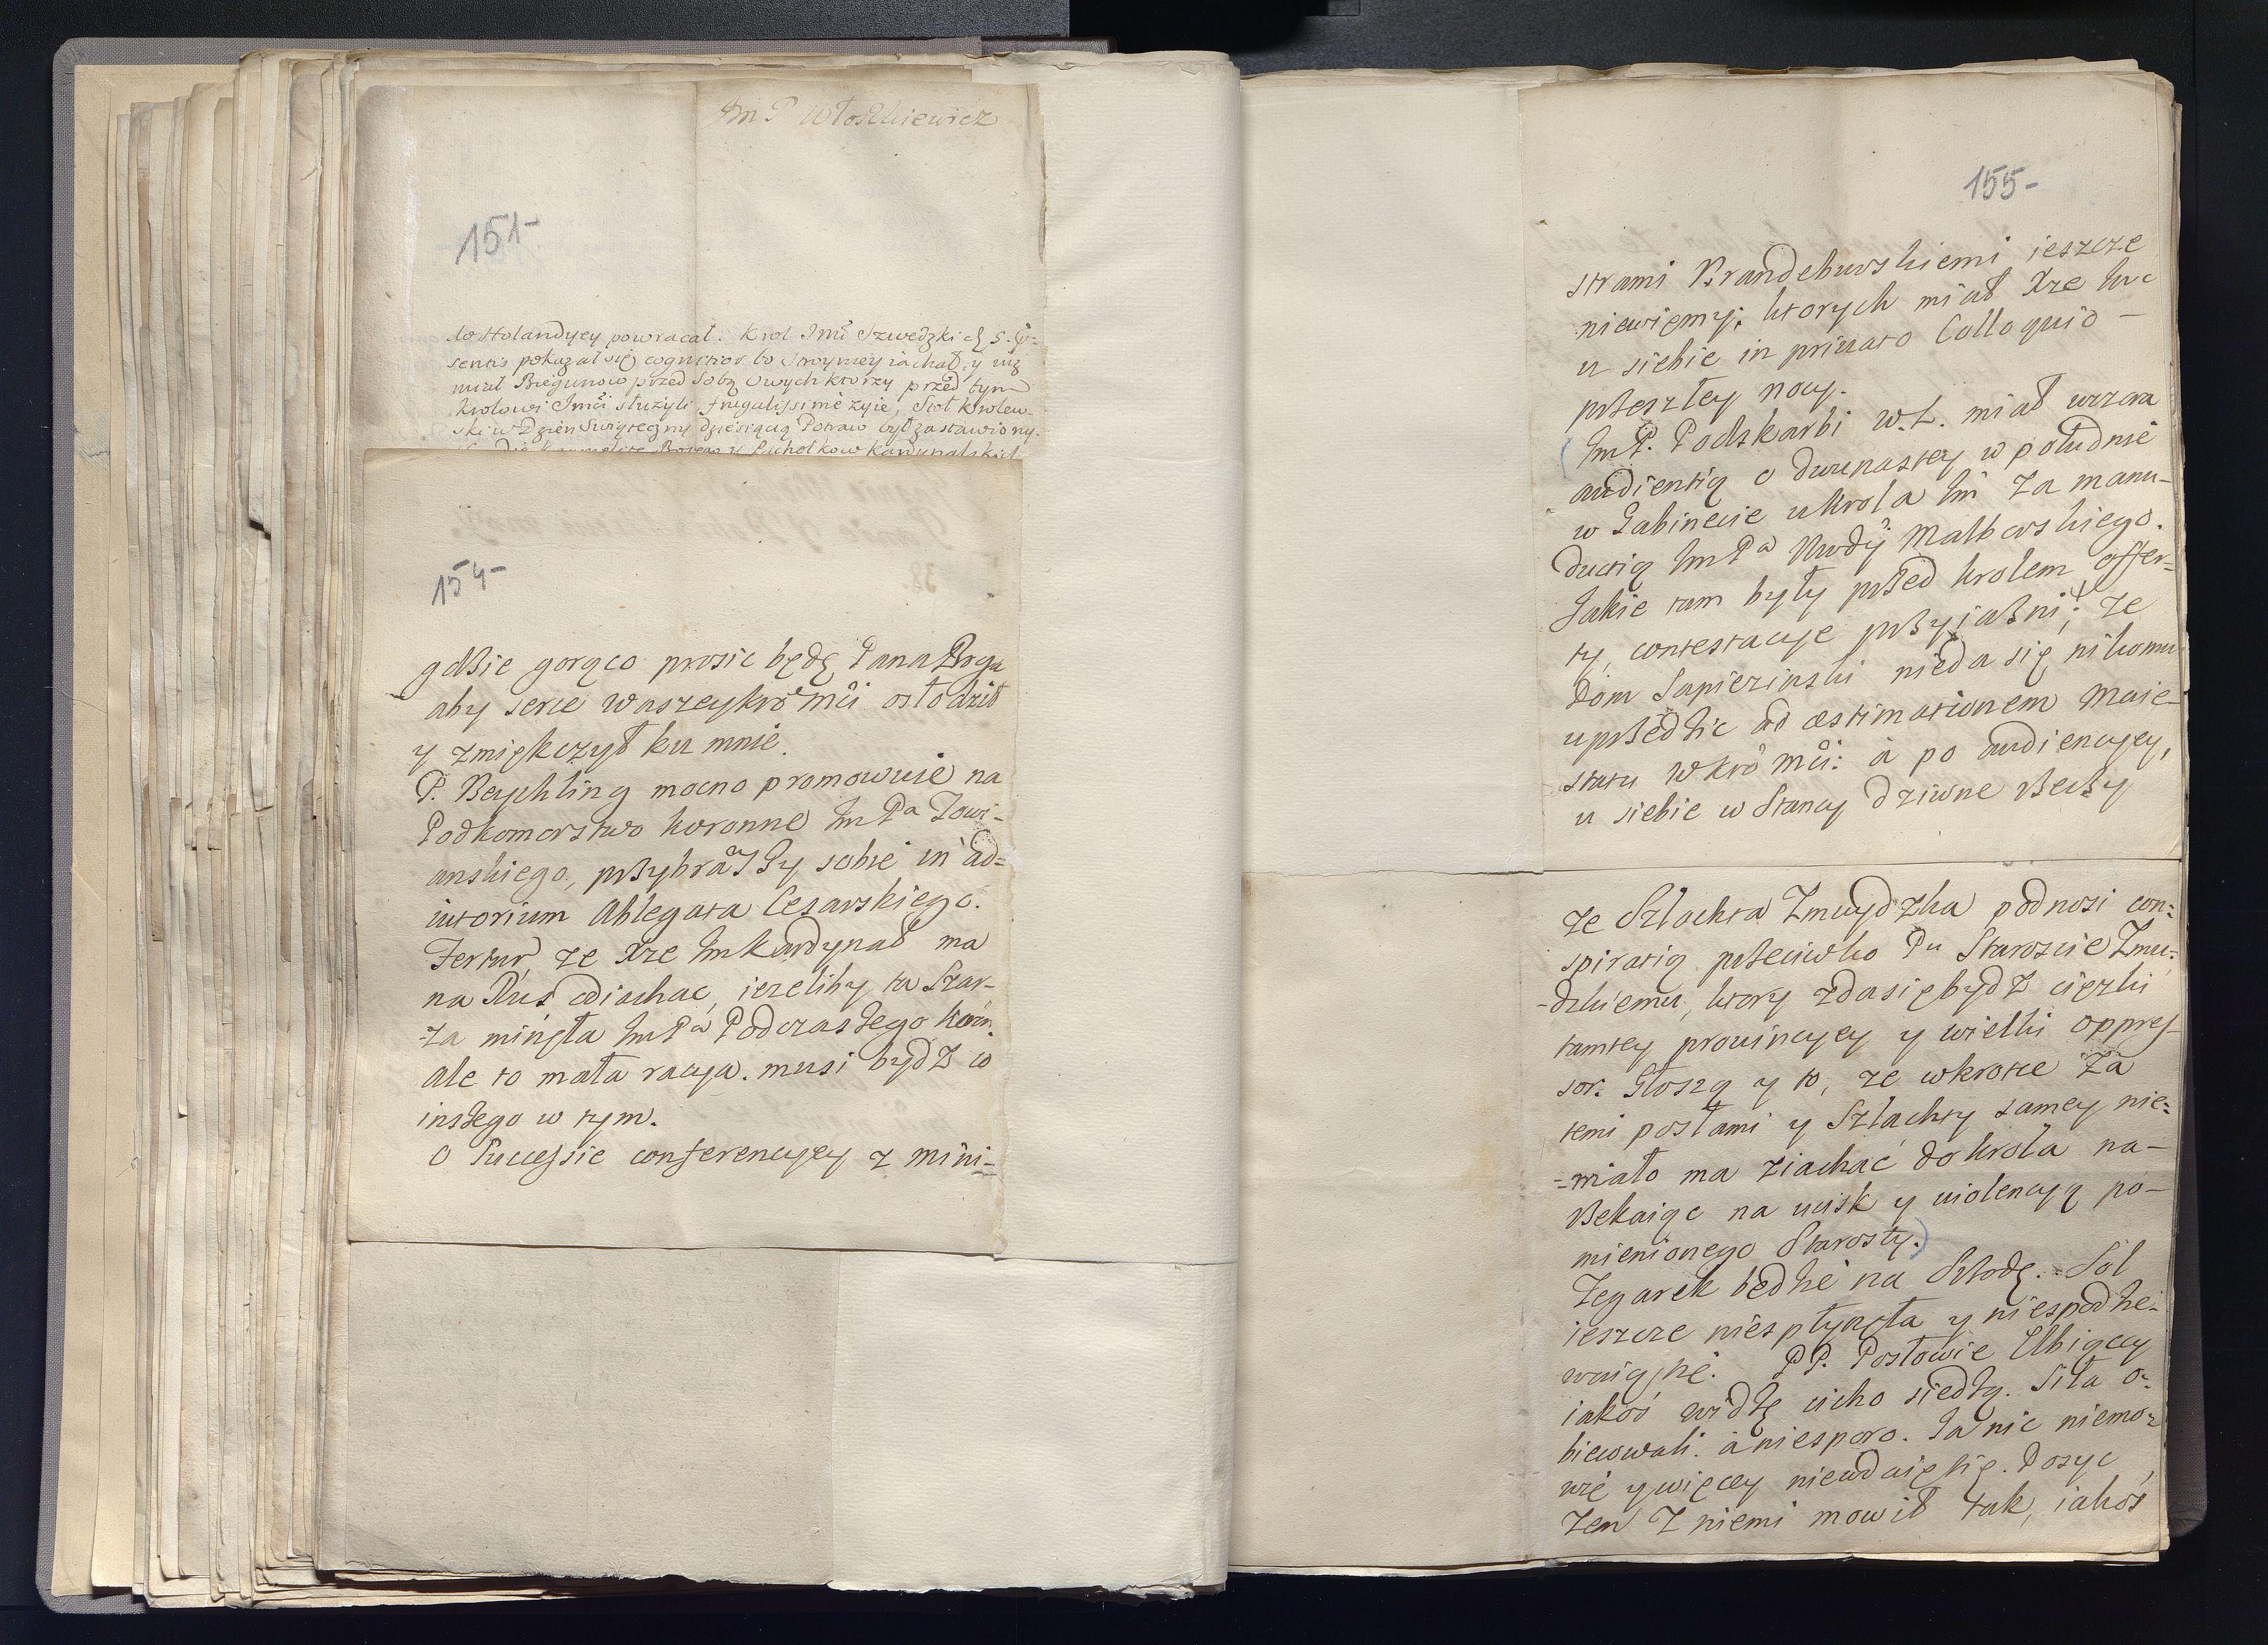 Jm P Włoszkiewicz
151-
do Holandyey powracał. Krol Jmć Szwedzki d. 5. pre-
sentis pokazał się cognitior bo Strymey iachał, y iuz
miał Biegunow przed Sobą Owych ktorzy przed tym
Krolowi Jmći słuzyli frugalissime zyie, Stoł krolew-
ski w Dzien Swiąteczny dziesiącią Potraw był zastawiony.
154-
gdzie gorąco prosic będę Pana Boga
aby serce waszey kro mći osłodził
y zmiękczył ku mnie.
P. Baychling mocno promowuie na
Podkomorstwo koronne Jm Pa Jowi-
anskiego, przybrawszy sobie in ad=
iutorium Ablegata Cesarskiego.
Fertur, ze Xże Jm kardynał ma
na Ruś odiachac, iezeliby ta Szar-
-za minęła Jm Pa Podczaszego koron.
ale to mała racya. musi bydz co
inszego w tym.
O Successie conferencyey z mini-
155-
strami Brandeburskiemi ieszcze
niewiemy; ktorych miał Xze Jmc
u siebie in priuato Colloquio -
przeszłey nocy.
Jm P. Podskarbi W. L. miał wczora
audientią o dwunastey w południe
w Gabinecie u krola Jm za manu-
ductią Jm Pa Wwdy Malborskiego.
Jakie tam były przed krolem offer=
ty, contestacye przyiazni; ze
Dom Sapiezinski nieda się nikomu
uprzedzic ad æstimationem Maie-
statu W kro mći: à po audiencyey,
u siebie w Stancy dziwne rzeczy
ze Szlachta Zmuydzka podnosi con=
spiratią przeciwko Pu Staroscie Zmu-
-dzkiemu, ktory zda się bydz cięzki
tamtey prouincyey y wielki oppres-
sor. Głoszą y to, ze wkrotce za
temi posłami y Szlachty samey nie=
=mało ma ziachać do krola na-
rzekaiąc na ucisk y uiolencyą po-
mienionego Starosty.
Zegarek będzie na Srzodę. Sol
ieszcze niespłynęła y niespodzie-
waią się. PP. Posłowie
iakoś widzę cicho siedzą. Siła o=
biecowali. à niesporo. Ja nic niemo=
wię y więcey nieudaię się. Dosyc
zem z niemi mowił tak, iakoś